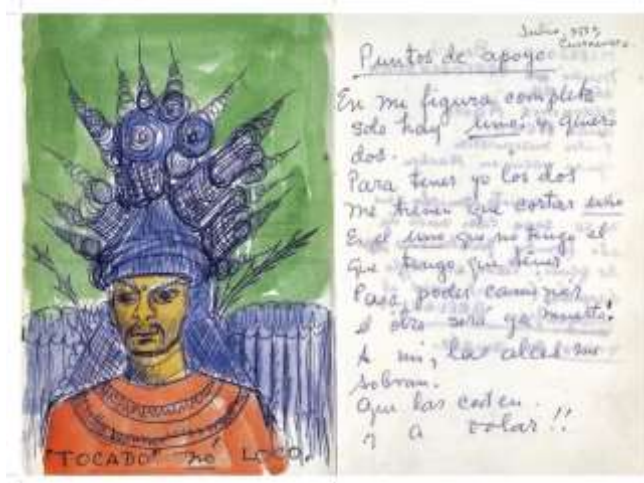 "TOCADO" no LOCO.
Julio, 1953,
Cuernavaca
Puntos de apoyo
En mi figura completa
solo hay uno; y quiero
dos.
Para tener yo los dos
me tienen que cortar uno
Es el uno que no tengo el
que tengo que tener
Para poder caminar
el otro será ya muerto!
A mi, las alas me
sobran.
Que las corten.
y a volar!!